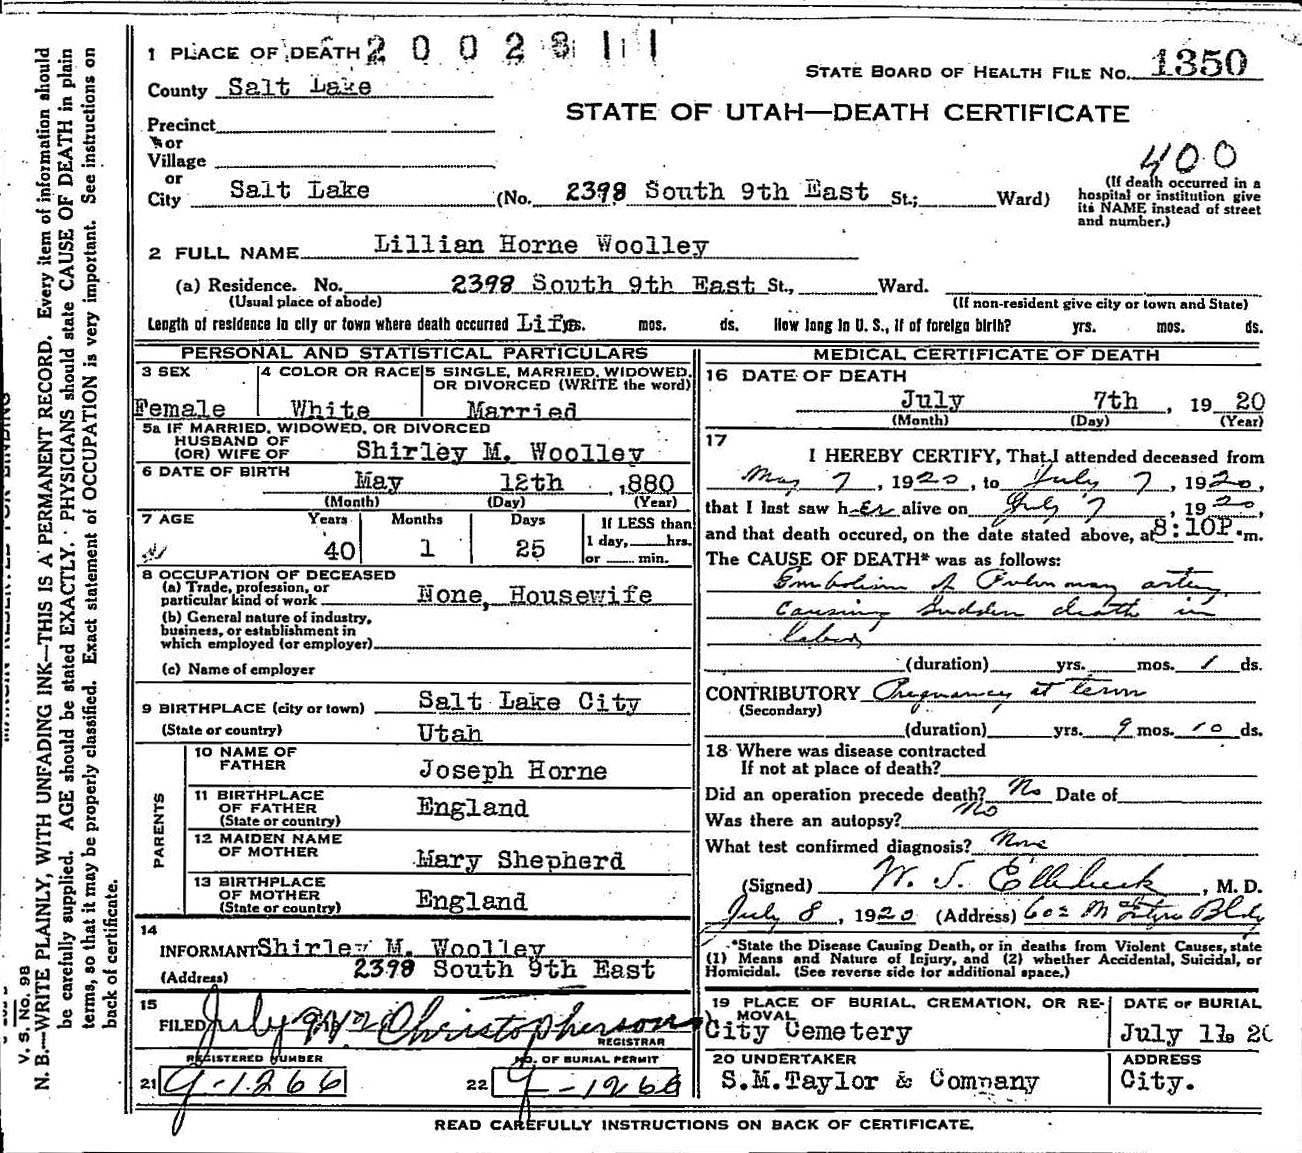 1 PLACE OF DEATH 2 0 0 2 8 1 1
STATE BOARD OF HEALTH FILE NO. 1350
County Salt Lake
STATE OF UTAH—DEATH CERTIFICATE
Precinct
or
Village
or
City Salt Lake (No. 2398 South 9th East St.; Ward)
400
(If death occurred in a
hospital or institution give
its NAME instead of street
and number.)
2 FULL NAME Lillian Horne Woolley
(a) Residence. No. 2398 South 9th East St., Ward.
(Usual place of abode) (If non-resident give city or town and State)
Length of residence in city or town where death occurred Life yrs. mos. ds. How long in U. S., if of foreign birth? yrs. mos. ds.
PERSONAL AND STATISTICAL PARTICULARS
3 SEX 4 COLOR OR RACE 5 SINGLE, MARRIED, WIDOWED,
OR DIVORCED (WRITE the word)
Female White Married
5a IF MARRIED, WIDOWED, OR DIVORCED
HUSBAND OF
(OR) WIFE OF Shirley M. Woolley
6 DATE OF BIRTH May 12th ,880
(Month) (Day) (Year)
7 AGE Years Months Days If LESS than
40 1 25 1 day, hrs.
or min.
8 OCCUPATION OF DECEASED
(a) Trade, profession, or
particular kind of work None, Housewife
(b) General nature of industry,
business, or establishment in
which employed (or employer)
(c) Name of employer
9 BIRTHPLACE (city or town) Salt Lake City
(State or country) Utah
PARENTS
10 NAME OF
FATHER Joseph Horne
11 BIRTHPLACE
OF FATHER England
(State or country)
12 MAIDEN NAME
OF MOTHER Mary Shepherd
13 BIRTHPLACE
OF MOTHER England
(State or country)
14
INFORMANT Shirley M. Woolley
(Address) 2398 South 9th East
15
FILED July 9 Christopherson
REGISTRAR
REGISTERED NUMBER NO. OF BURIAL PERMIT
21 9-1266 22 9-1266
MEDICAL CERTIFICATE OF DEATH
16 DATE OF DEATH
July 7th , 19 20
(Month) (Day) (Year)
17
I HEREBY CERTIFY, That I attended deceased from
May 7, 1920, to July 7, 1920,
that I last saw her alive on July 7, 1920,
and that death occured, on the date stated above, at 8:10P.m.
The CAUSE OF DEATH* was as follows:
Embolism of Pulmonary artery
causing sudden death in
labor
(duration) yrs. mos. 1 ds.
CONTRIBUTORY Pregnancy at term
(Secondary)
(duration) yrs. 9 mos. 10 ds.
18 Where was disease contracted
If not at place of death?
Did an operation precede death? No Date of
Was there an autopsy? No
What test confirmed diagnosis? None
(Signed) W. S. Ellerbeck, M. D.
July 8, 1920 (Address) 602 McIntyre Bldg
*State the Disease Causing Death, or in deaths from Violent Causes, state
(1) Means and Nature of Injury, and (2) whether Accidental, Suicidal, or
Homicidal. (See reverse side for additional space.)
19 PLACE OF BURIAL, CREMATION, OR RE-
MOVAL
City Cemetery
DATE OF BURIAL
July 11 20
20 UNDERTAKER
S.M.Taylor & Company
ADDRESS
City.
READ CAREFULLY INSTRUCTIONS ON BACK OF CERTIFICATE.
V. S. No. 98
N. B.—WRITE PLAINLY, WITH UNFADING INK—THIS IS A PERMANENT RECORD. Every item of information should
be carefully supplied. AGE should be stated EXACTLY. PHYSICIANS should state CAUSE OF DEATH in plain
terms, so that it may be properly classified. Exact statement of OCCUPATION is very important. See instructions on
back of certificate.